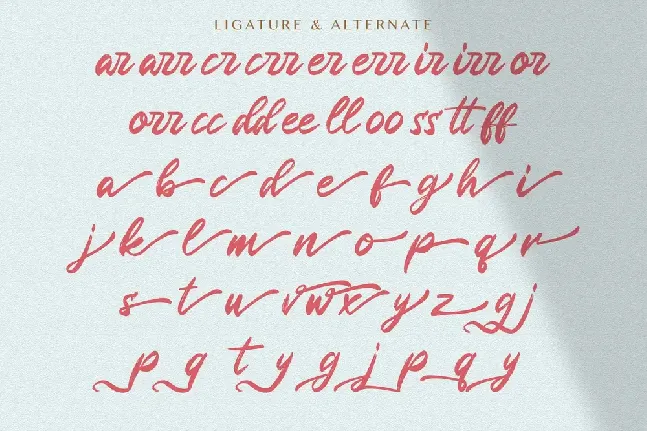 LIGATURE & ALTERNATE
ar arr cr crr er err ir irr or
orr cc dd ee ll oo ss tt ff
a b c d e f g h i
j k l m n o p q r
s t u v w x y z g j
p g t y g j p q y